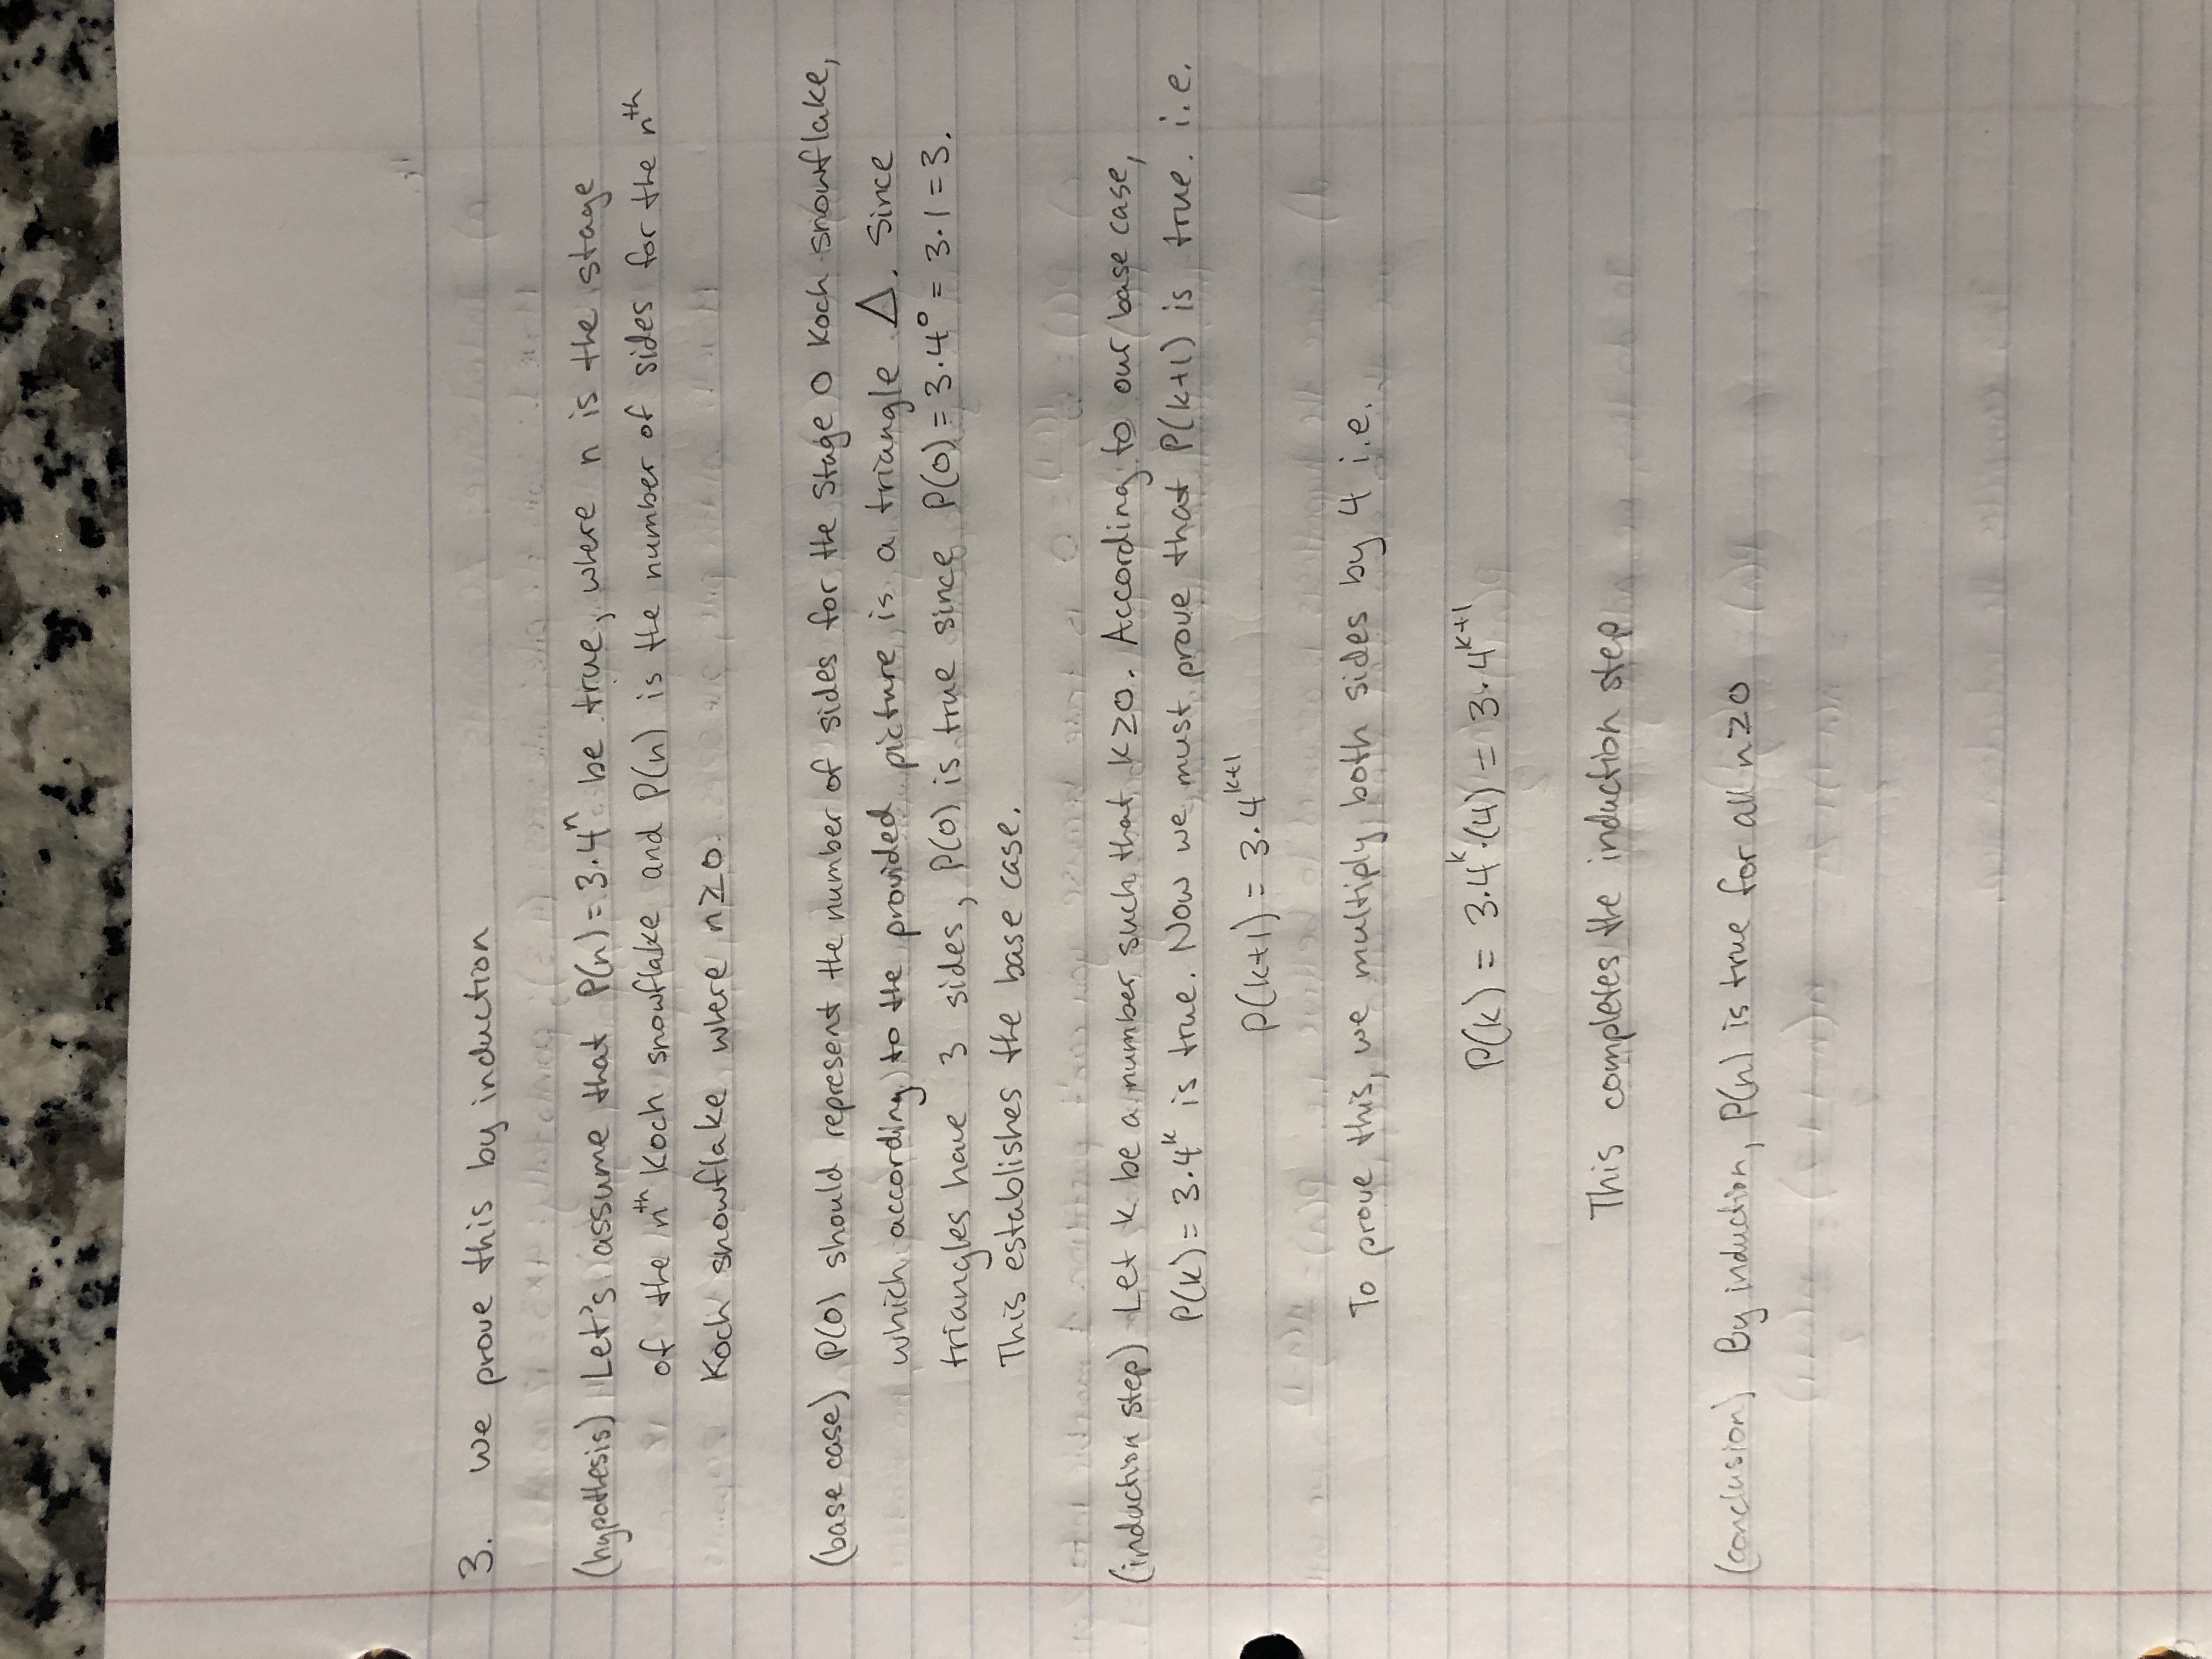 3. We prove this by induction
(hypothesis) Let's assume that P(n) = 3·4ⁿ be true, where n is the stage
of the nᵗʰ Koch snowflake and P(n) is the number of sides for the nᵗʰ
Koch snowflake where n≥0.
(base case) P(0) should represent the number of sides for the stage 0 Koch snowflake,
which according to the provided picture is a triangle Δ. Since
triangles have 3 sides, P(0) is true since P(0) = 3·4⁰ = 3·1 = 3.
This establishes the base case.
(induction step) Let k be a number such that k≥0. According to our base case,
P(k) = 3·4ᵏ is true. Now we must prove that P(k+1) is true. i.e.
P(k+1) = 3·4ᵏ⁺¹
To prove this, we multiply both sides by 4 i.e.
P(k) = 3·4ᵏ·(4) = 3·4ᵏ⁺¹
This completes the induction step
(conclusion) By induction, P(n) is true for all n≥0